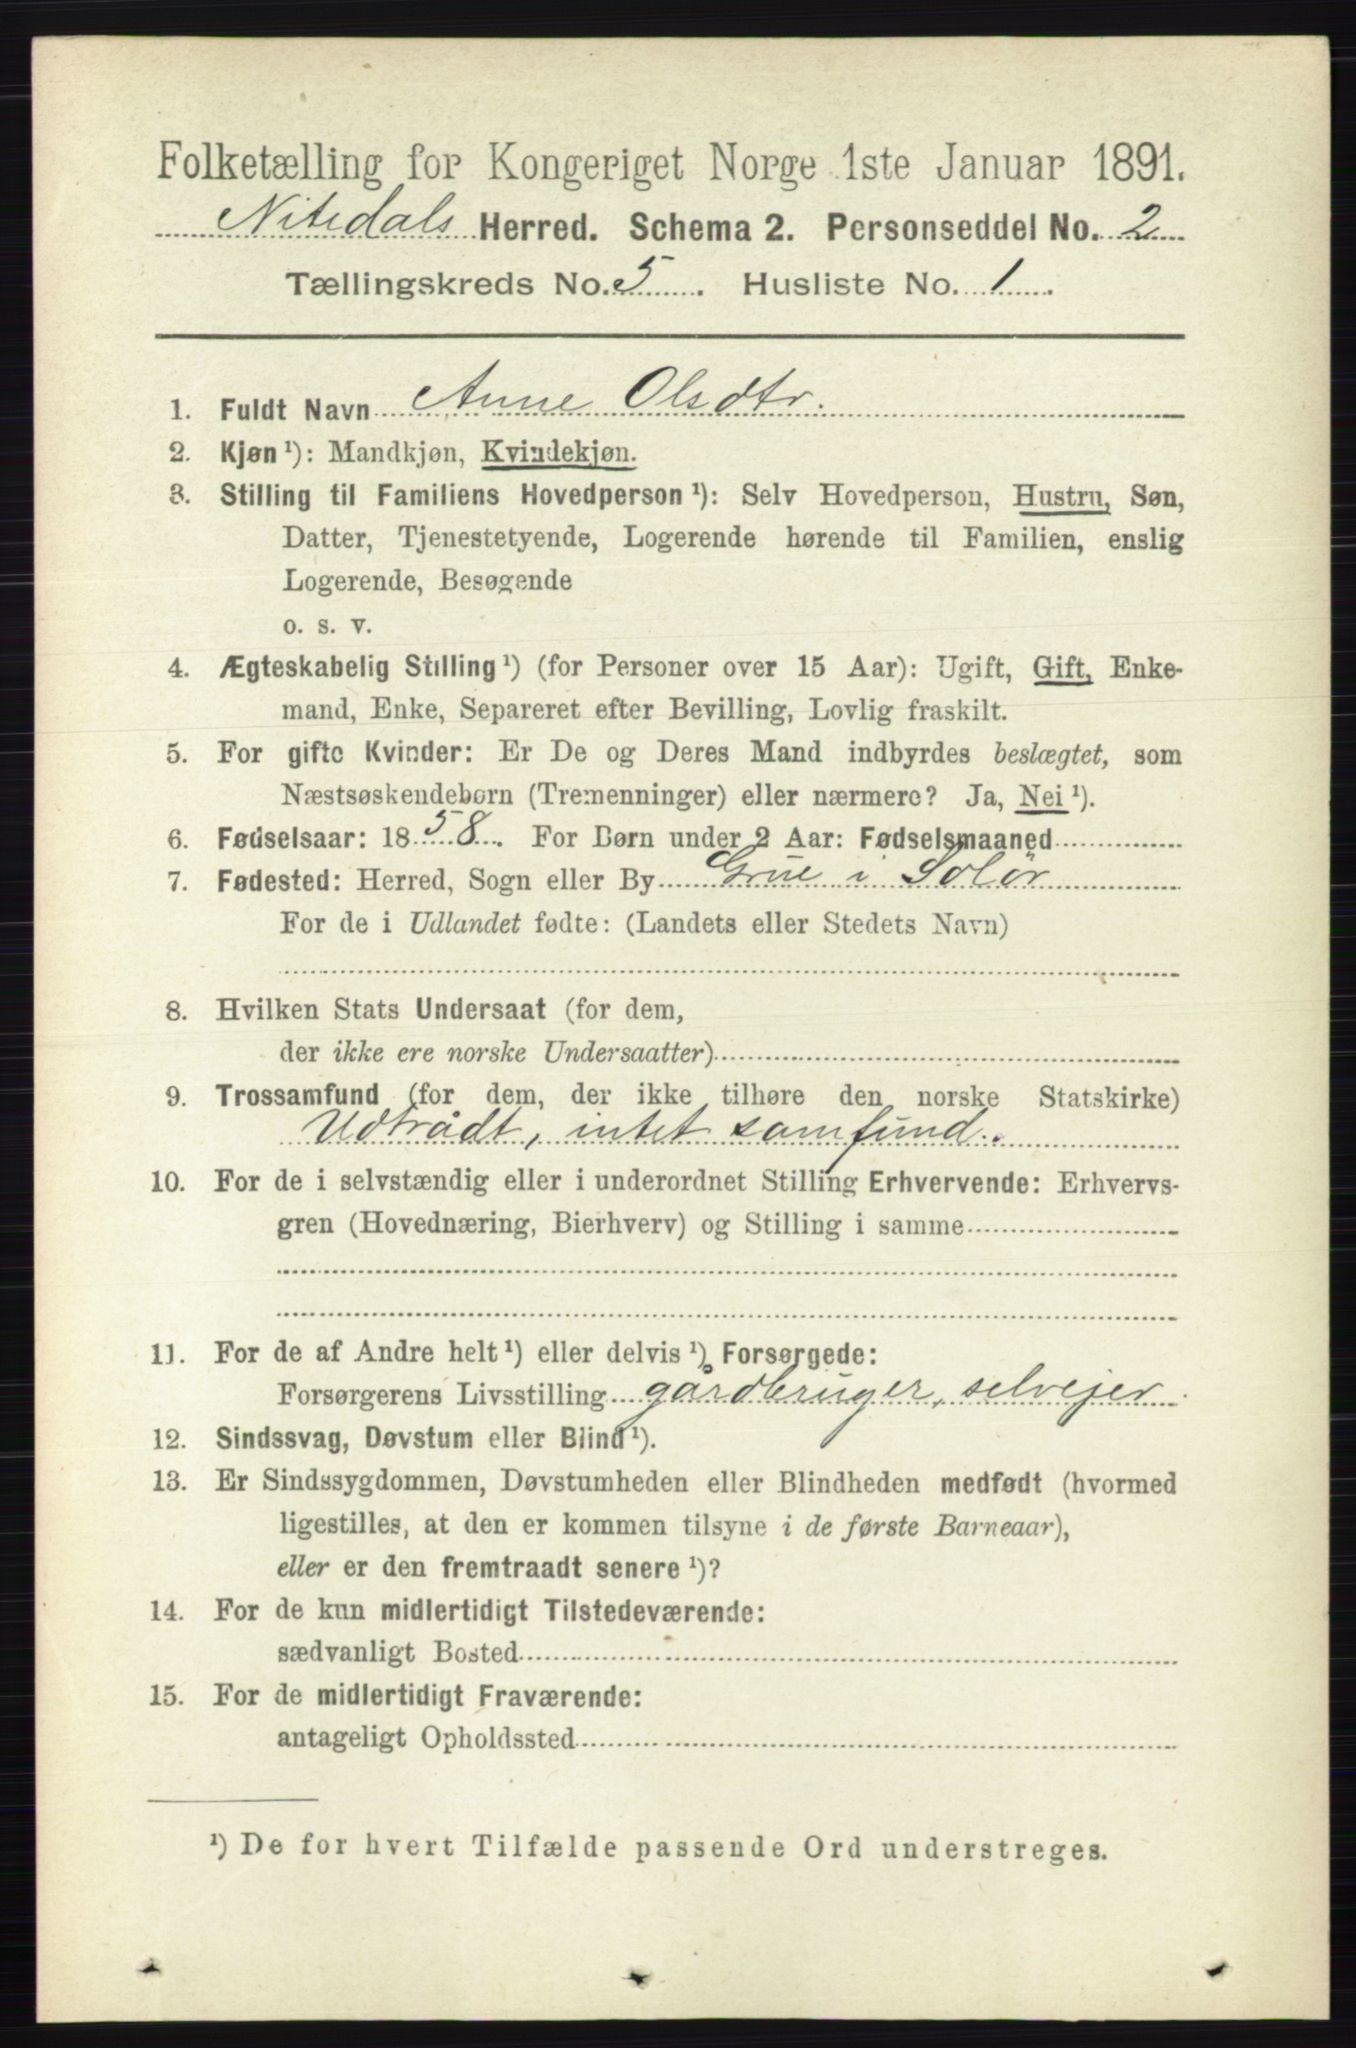 Folketælling for Kongeriget Norge 1ste Januar 1891.
Nitedals Herred. Schema 2. Personseddel No. 2
Tællingskreds No. 5. Husliste No. 1.
1. Fuldt Navn Anne Olsdtr.
2. Kjøn ¹): Mandkjøn, Kvindekjøn.
3. Stilling til Familiens Hovedperson ¹): Selv Hovedperson, Hustru, Søn,
Datter, Tjenestetyende, Logerende hørende til Familien, enslig
Logerende, Besøgende
o. s. v.
4. Ægteskabelig Stilling ¹) (for Personer over 15 Aar): Ugift, Gift, Enke-
mand, Enke, Separeret efter Bevilling, Lovlig fraskilt.
5. For gifte Kvinder: Er De og Deres Mand indbyrdes beslægtet, som
Næstsøskendebørn (Tremenninger) eller nærmere? Ja, Nei ¹).
6. Fødselsaar: 1858. For Børn under 2 Aar: Fødselsmaaned
7. Fødested: Herred, Sogn eller By Grue i Solør
For de i Udlandet fødte: (Landets eller Stedets Navn)
8. Hvilken Stats Undersaat (for dem,
der ikke ere norske Undersaatter)
9. Trossamfund (for dem, der ikke tilhøre den norske Statskirke)
Udtrådt, intet samfund.
10. For de i selvstændig eller i underordnet Stilling Erhvervende: Erhvervs-
gren (Hovednæring, Bierhverv) og Stilling i samme
11. For de af Andre helt ¹) eller delvis ¹) Forsørgede:
Forsørgerens Livsstilling gårdbruger, selvejer.
12. Sindssvag, Døvstum eller Blind ¹).
13. Er Sindssygdommen, Døvstumheden eller Blindheden medfødt (hvormed
ligestilles, at den er kommen tilsyne i de første Barneaar),
eller er den fremtraadt senere ¹)?
14. For de kun midlertidigt Tilstedeværende:
sædvanligt Bosted
15. For de midlertidigt Fraværende:
antageligt Opholdssted
¹) De for hvert Tilfælde passende Ord understreges.